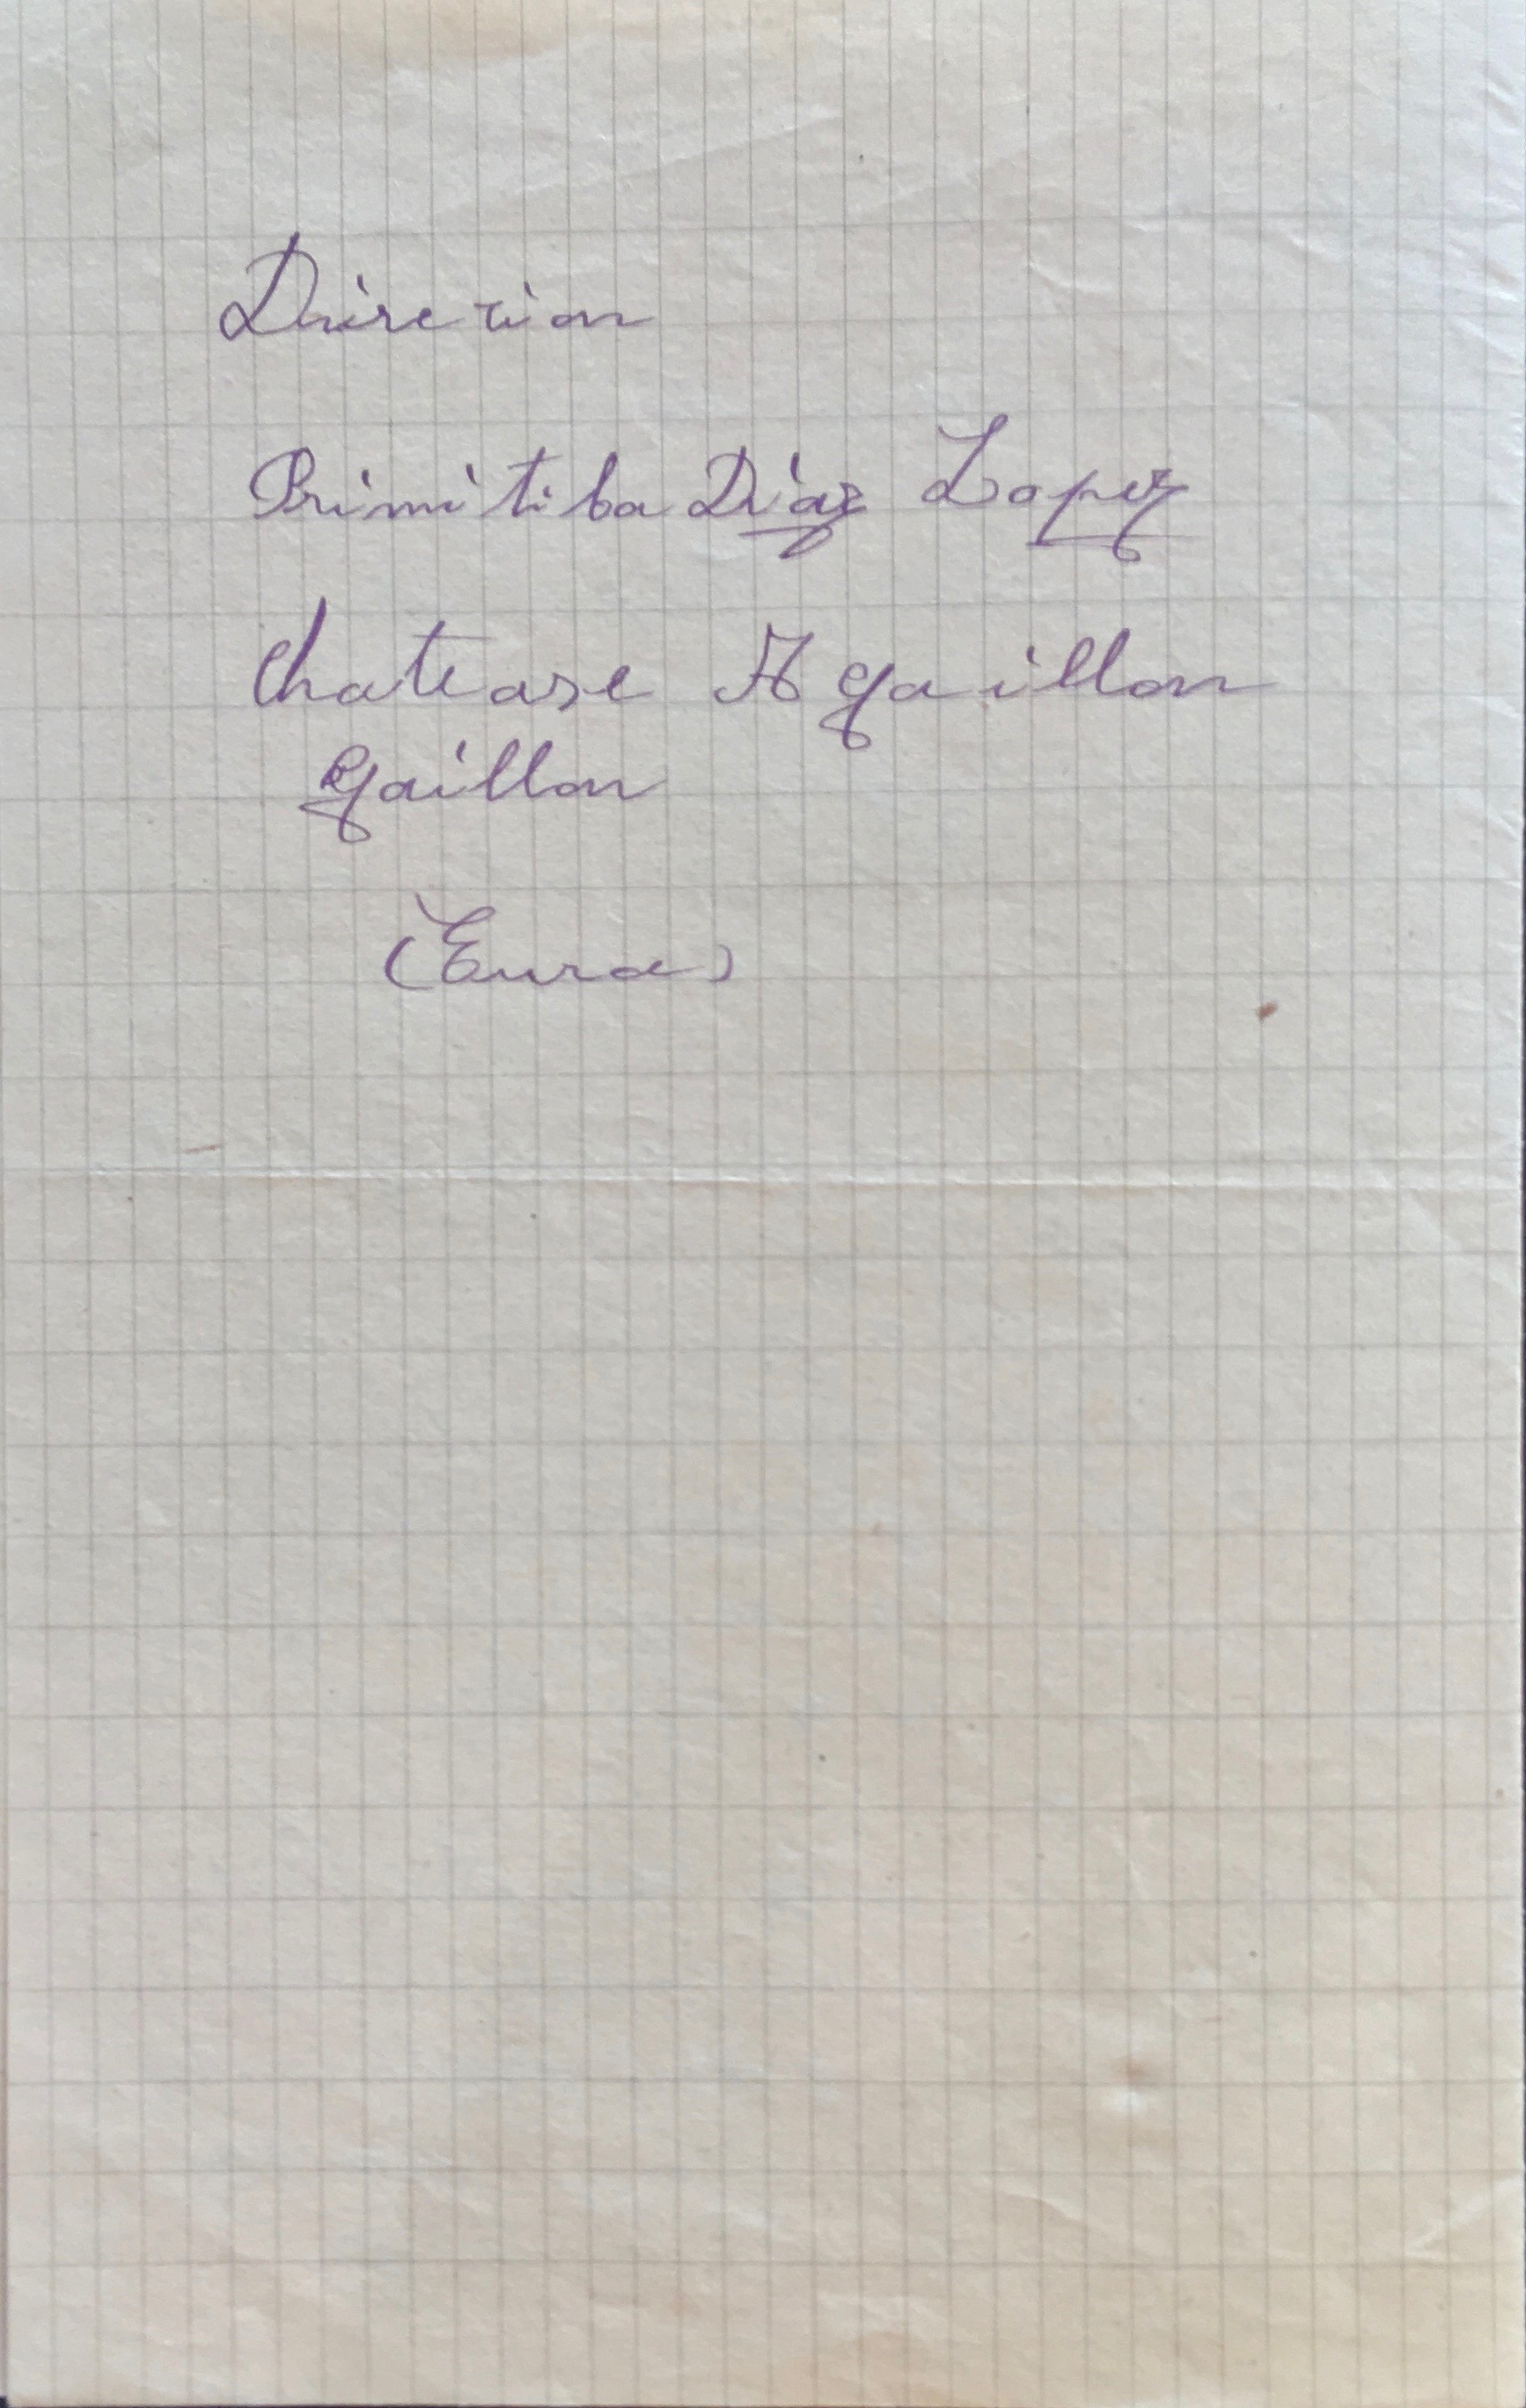 Direcion
Primitiba Díaz Lopez
Chatease A gaillon
gaillon
(Eura)